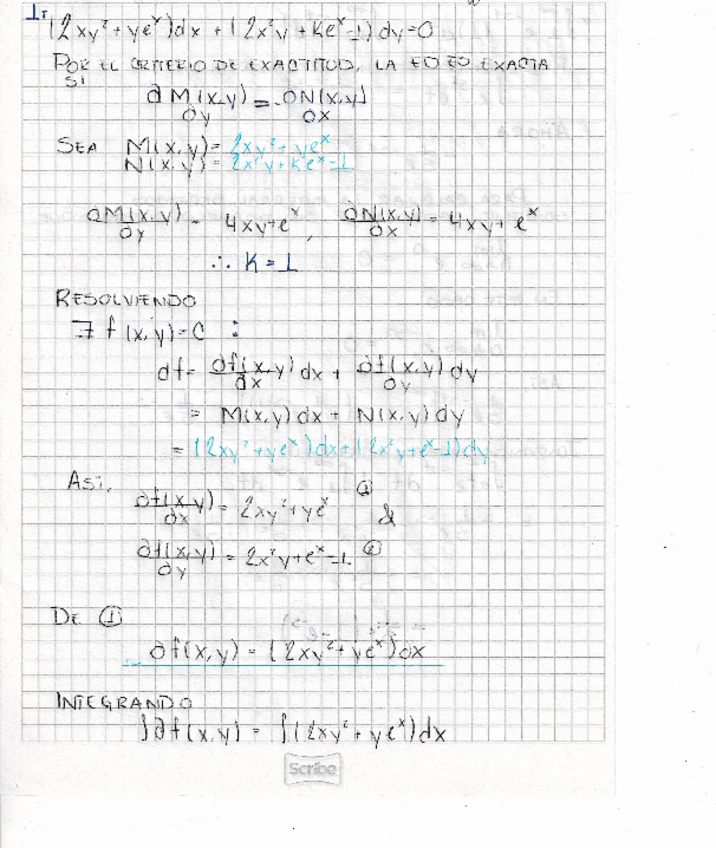 1:
(2xy² + ye^x)dx + (2x²y + ke^x-1)dy=0
POR EL CRITERIO DE EXACTITUD, LA ED ES EXACTA
SI
∂M(x,y) = ∂N(x,y)
∂y ∂x
SEA M(x,y)= 2xy² + ye^x
N(x,y) = 2x²y + ke^x-1
∂M(x,y) = 4xy+e^x, ∂N(x,y) = 4xy+e^x
∂y ∂x
∴ K=1
RESOLVIENDO
∃ f(x,y)=C :
df= ∂f(x,y)dx + ∂f(x,y)dy
∂x ∂y
= M(x,y)dx + N(x,y)dy
= (2xy² + ye^x)dx+(2x²y+e^x-1)dy
ASI,
∂f(x,y) = 2xy²+ye^x ① &
∂x
∂f(x,y) = 2x²y+e^x-1 ②
∂y
DE ①
∂f(x,y) = (2xy²+ye^x)∂x
INTEGRANDO
∫∂f(x,y) = ∫(2xy² + ye^x)dx
Scribe